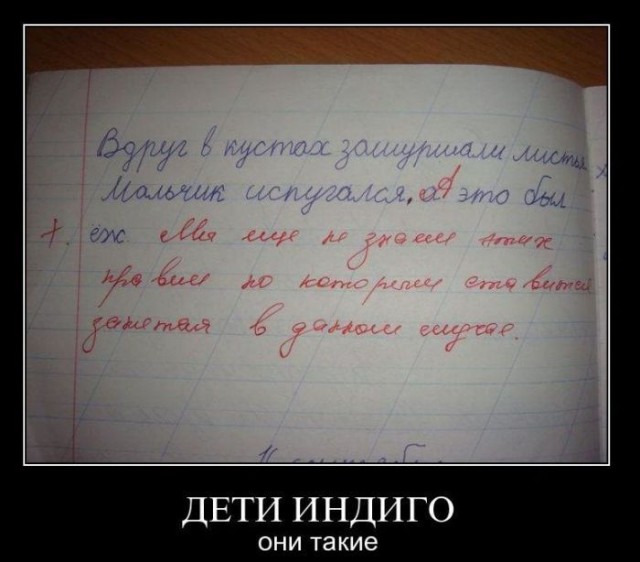 Вдруг в кустах зашуршали листья
Мальчик испугался, а это был
ёж. Мы еще не знаем этих
правил по которым ставится
запятая в данном случае.
ДЕТИ ИНДИГО
они такие